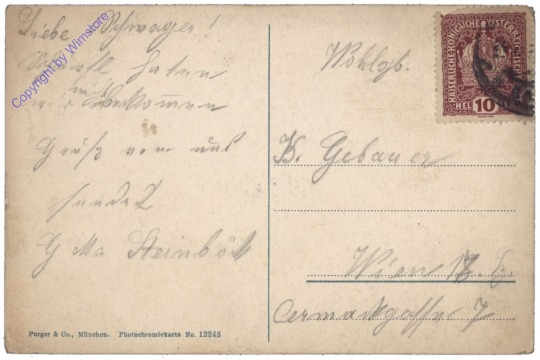 Liebe Schwager!
haben
bekommen
Gruß von uns
sendet
G Ma Steinböck
Copyright by Wimstore
Wohlgb.
K. Gebauer
Wien
Cermakgasse 7
KAISERLICHE KÖNIGLICHE ÖSTERREICHISCHE
HEL 10
Purger & Co., München. Photochromiekarte No. 12243